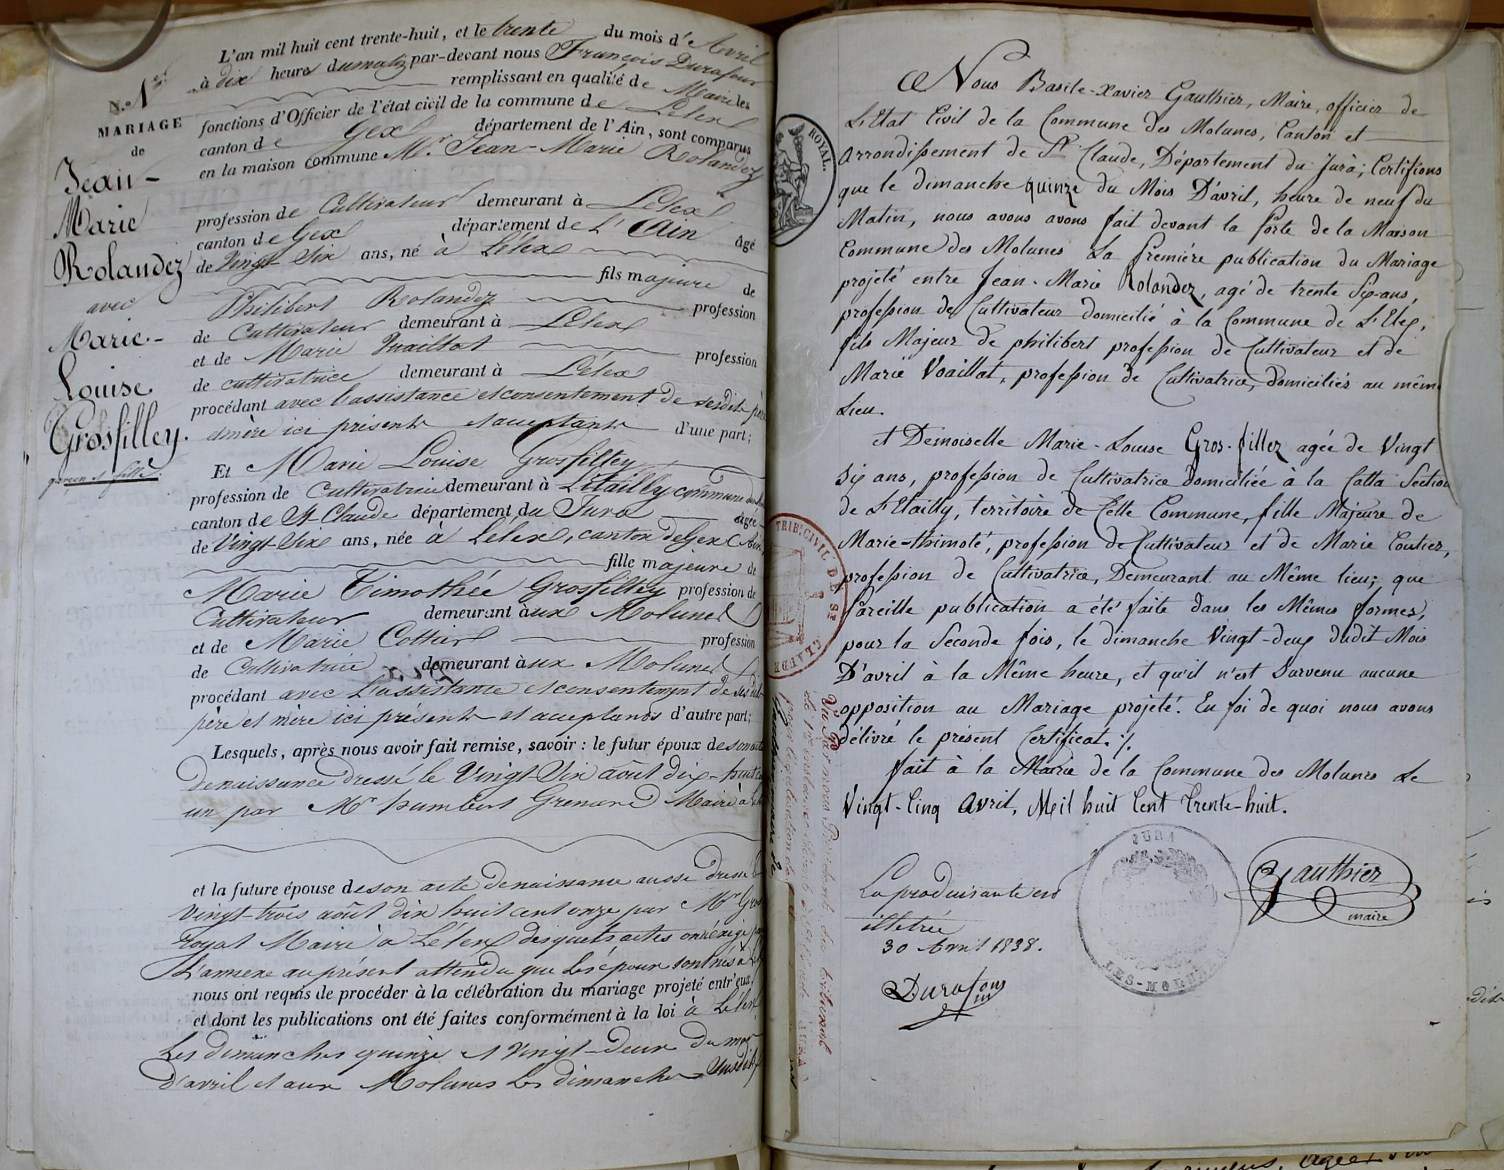 N.o 1er
MARIAGE
de
Jean-
Marie
Rolandez
avec
Marie-
Louise
Grosfilley.
garçon et fille.
L'an mil huit cent trente-huit, et le trente du mois d'Avril
à dix heures du matin par-devant nous François Durafour
remplissant en qualité de Maire les
fonctions d'Officier de l'état civil de la commune de Lelex
canton de Gex département de l'Ain, sont comparus
en la maison commune Mr. Jean-Marie Rolandez
profession de Cultivateur demeurant à Lelex
canton de Gex département de L'Ain âgé
de Vingt Six ans, né à Lelex
fils majeure de
Philibert Rolandez profession
de Cultivateur demeurant à Lelex
et de Marie Vuaillat profession
de cultivatrice demeurant à Lelex
procédant avec l'assistance et consentement de sesdits père
et mère ici présents et acceptants d'une part;
Et Marie Louise Grosfilley
profession de Cultivatrice demeurant à L'étailly commune des
canton de St Claude département du Jura âgée
de Vingt Six ans, née à Lelex, canton de Gex (Ain)
fille majeure de
Marie Timothée Grosfilley profession de
Cultivateur demeurant aux Molunes
et de Marie Cottier profession
de Cultivatrice demeurant aux Molunes
procédant avec L'assistance et consentement de ses
père et mère ici présents et acceptants d'autre part;
Lesquels, après nous avoir fait remise, savoir: le futur époux de son acte
de naissance dressé le Vingt Six août dix-huit cent
un par Mr humbert Grenard Maire à Lelex
et la future épouse de son acte de naissance aussi dressé le
vingt trois août dix huit cent onze par Mr Gros
royat Maire à Lélex desquels actes on exige pas
L'annexe au présent attendu que les époux sont nés à
nous ont requis de procéder à la célébration du mariage projeté entr'eux,
et dont les publications ont été faites conformément à la loi à Lelex
Les dimanches quinze et Vingt-deux du mois
d'avril et aux Molunes les dimanches susdits
ROYAL.
Nous Basile-Xavier Gauthier, Maire, officier de
L'Etat Civil de la Commune des Molunes, Canton et
Arrondissement de St Claude, Département du Jura; Certifions
que le dimanche quinze du Mois D'avril, heure de neuf du
Matin, nous avons avons fait devant la Porte de la Maison
Commune des Molunes La Première publication du Mariage
projeté entre Jean-Marie Rolandez, agé de trente Six-ans,
profession de Cultivateur domicilié à la Commune de L'Elex,
fils Majeur de philibert profession de Cultivateur et de
Marie Voaillat, profession de Cultivatrice, domiciliés au même
Lieu.
et Demoiselle Marie-Louise Gros-fillez agée de Vingt
Six ans, profession de Cultivatrice domiciliée à la Catta Section
de L'Etailly, territoire de Cette Commune, fille Majeure de
Marie-thimoté, profession de Cultivateur et de Marie Coutier,
profession de Cultivatrice, Demeurant au Même lieu; que
Pareille publication a été faite dans les Mêmes formes,
pour la Seconde fois, le dimanche Vingt-deux dudit Mois
D'avril à la Même heure, et qu'il n'est Survenu aucune
opposition au Mariage projeté. En foi de quoi nous avons
délivré le présent Certificat. ./.
fait à la Mairie de la Commune des Molunes Le
Vingt-Cinq Avril, Mil huit Cent Trente-huit.
TRIB. CIVIL DE ST CLAUDE
La produisante est
illetrée
30 Avril 1838.
Durafour
JURA
LES-MOLUNES
Gauthier
maire